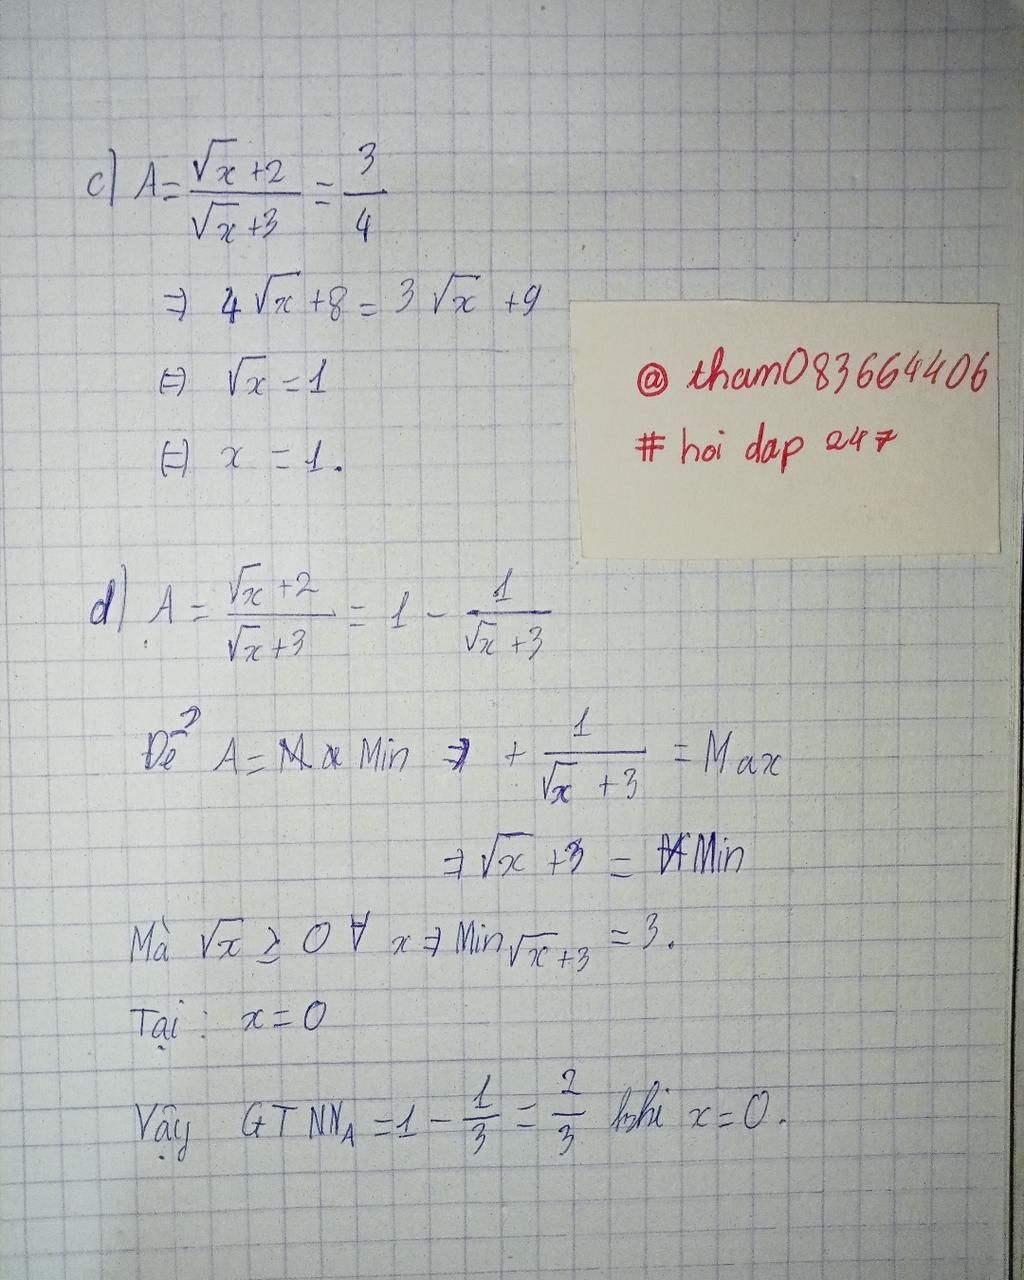 c) A = (√x + 2)/(√x + 3) = 3/4
⇒ 4√x + 8 = 3√x + 9
⇔ √x = 1
⇔ x = 1.
@ tham083664406
# hoi dap 247
d) A = (√x + 2)/(√x + 3) = 1 - 1/(√x + 3)
Để A = Min ⇒ + 1/(√x + 3) = Max
⇒ √x + 3 = Min
Mà √x ≥ 0 ∀ x ⇒ Min √x + 3 = 3.
Tại: x = 0
Vậy GTNN_A = 1 - 1/3 = 2/3 khi x = 0.